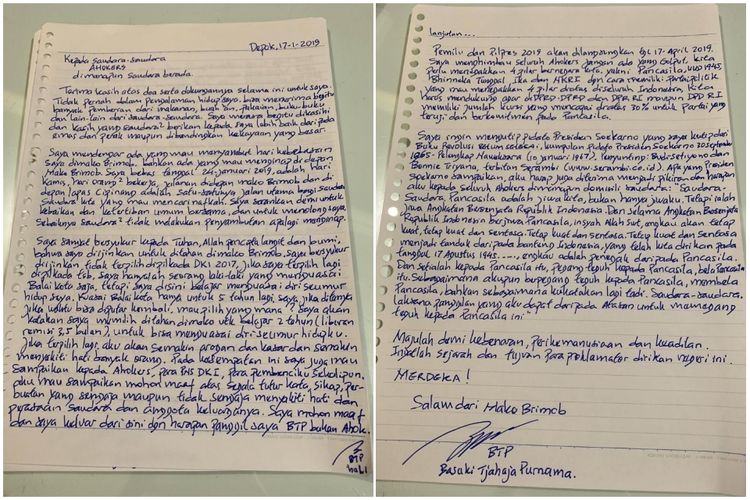 Depok, 17-1-2019
Kepada Saudara-saudara
AHOKERS
dimanapun Saudara berada.
Terima kasih atas doa serta dukungannya selama ini untuk saya.
Tidak pernah dalam pengalaman hidup saya, bisa menerima begitu
banyak pemberian dari makanan, buah-an, pakaian, buku-buku
dan lain-lain dari saudara-saudara. Saya merasa begitu dikasihi
dan kasih yang saudara² berikan kepada saya lebih baik daripada
emas dan perak maupun dibandingkan kekayaan yang besar.
Saya mendengar ada yang mau menyambut hari kebebasan
saya dimako Brimob, bahkan ada yang mau menginap di depan
Mako Brimob. Saya bebas tanggal 24-januari 2019, adalah hari
Kamis, hari orang² bekerja, jalanan didepan mako Brimob dan di
depan lapas Cipinang adalah satu-satunya jalan utama bagi saudara
saudara kita yang mau mencari nafkah. Saya sarankan demi untuk
kebaikan dan ketertiban umum bersama, dan untuk menolong saya
Sebaiknya saudara² tidak melakukan penyambutan apalagi menginap.
Saya sangat bersyukur kepada Tuhan, Allah pencipta langit dan bumi,
bahwa saya diijinkan untuk ditahan di mako Brimob. Saya bersyukur
diijinkan tidak terpilih di pilkada DKI 2017, jika saya terpilih lagi
di pilkada tsb, saya hanyalah seorang laki-laki yang menguasai
Balai Kota saja, tetapi saya disini belajar menguasai diri seumur
hidup saya. Kuasai Balai Kota hanya untuk 5 tahun lagi, saya jika ditanya
jika waktu bisa diputar kembali, mau pilih yang mana? Saya akan
katakan saya memilih ditahan dimako utk belajar 2 tahun (liburan
remisi 3,5 bulan), untuk bisa menguasai diri seumur hidupku.
Jika terpilih lagi, aku akan semakin arogan dan kasar dan semakin
menyakiti hati banyak orang. Pada kesempatan ini saya juga mau
sampaikan kepada Ahokers, para PNS DKI, para pembenciku sekalipun,
aku mau sampaikan mohon maaf atas segala tutur kata, sikap, per-
buatan yang sengaja maupun tidak sengaja menyakiti hati dan
perasaan saudara dan anggota keluarganya. Saya mohon maaf
dan saya keluar dari sini dgn harapan panggil saya BTP bukan Ahok.
BTP
hal 1
lanjutan...
Pemilu dan Pilpres 2019 akan dilangsungkan tgl 17-April 2019.
Saya menghimbau seluruh Ahokers jangan ada yang Golput, kita
perlu menegakkan 4 pilar bernegara kita, yakni Pancasila, UUD 1945,
Bhinneka Tunggal Ika dan NKRI dgn cara memiliki partai politik
yang mau menegakkan 4 pilar diatas diseluruh Indonesia. Kita
harus mendukung agar di DPRD-DPRD dan DPR RI maupun DPD RI
memiliki jumlah kursi yang mencapai diatas 30% untuk Partai yang
teruji dan berkomitmen pada Pancasila.
Saya ingin mengutip pidato Presiden Soekarno yang saya kutip dari
Buku Revolusi belum selesai, kumpulan pidato Presiden Soekarno 30 september
1965 - Pelengkap Nawaksara (10 januari 1967), Penyunting: Budi Setiyono dan
Bonnie Triyana, terbitan Serambi (www.serambi.co.id). Apa yang Presiden
Soekarno sampaikan, aku harap juga diterima menjadi pikiran dan harapan
aku kepada seluruh Ahokers dimanapun domisili saudara: "Saudara-
Saudara, Pancasila adalah jiwa kita, bukan hanya jiwaku. Tetapi ialah
jiwa Angkatan Bersenjata Republik Indonesia. Dan selama Angkatan Bersenjata
Republik Indonesia berjiwa Pancasila, insyah Allah Swt, engkau akan tetap
kuat, tetap kuat dan sentosa. Tetap kuat dan sentosa. Tetap kuat dan sentosa
menjadi tanduk daripada banteng Indonesia, yang telah kita dirikan pada
tanggal 17 Agustus 1945...., engkau adalah penegak daripada Pancasila.
Dan setialah kepada Pancasila itu, pegang teguh kepada Pancasila, bela Pancasila
itu. Sebagaimana akupun berpegang teguh kepada Pancasila, membela
Pancasila, bahkan sebagaimana kukatakan lagi tadi. Saudara-saudara,
laksana panggilan yang aku dapat daripada Atasan untuk memegang
teguh kepada Pancasila ini."
Majulah demi kebenaran, perikemanusiaan dan keadilan.
Ingatlah sejarah dan tujuan para proklamator dirikan negeri ini.
MERDEKA!
Salam dari Mako Brimob
BTP
Basuki Tjahaja Purnama.